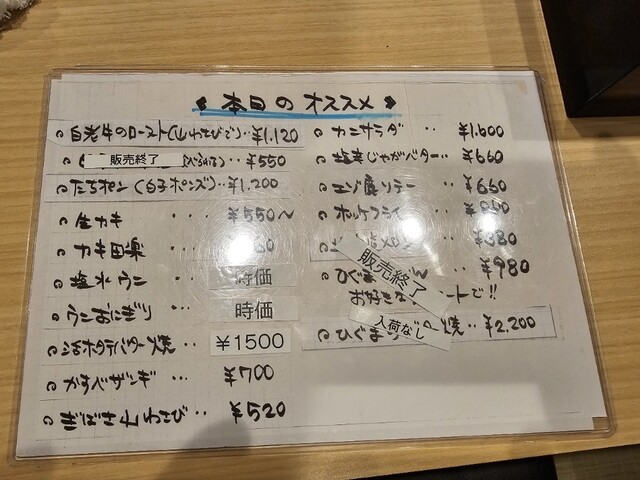 本日のオススメ
白老牛のロースト(山わさびで)‥¥1,120
販売終了 ‥¥550
たちポン(白子ポンズ)‥¥1,200
生カキ ‥‥ ¥550〜
カキ田楽 ‥‥
塩水ウニ ‥‥ 時価
ウニおにぎり 時価
活ホタテバター焼 ‥‥ ¥1500
かすべザンギ ‥‥ ¥700
ぎばさ山わさび‥ ¥520
カニサラダ ‥ ¥1,600
塩辛じゃがバター‥ ¥660
エゾ鹿ソテー ‥ ¥660
ホッケフライ
¥380
販売終了
ひぐま ‥ ¥980
お好きな ートで!!
ひぐま 入荷なし 焼‥¥2,200